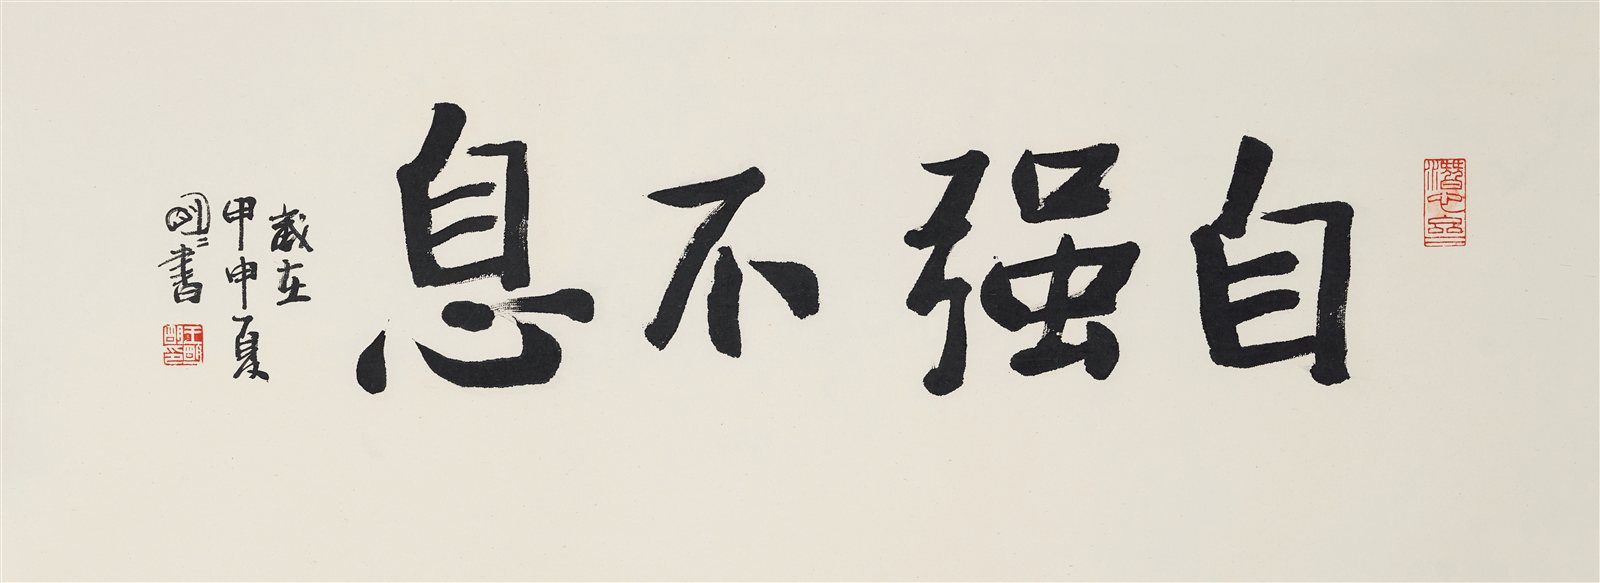 自强不息
歲在
甲申夏
書